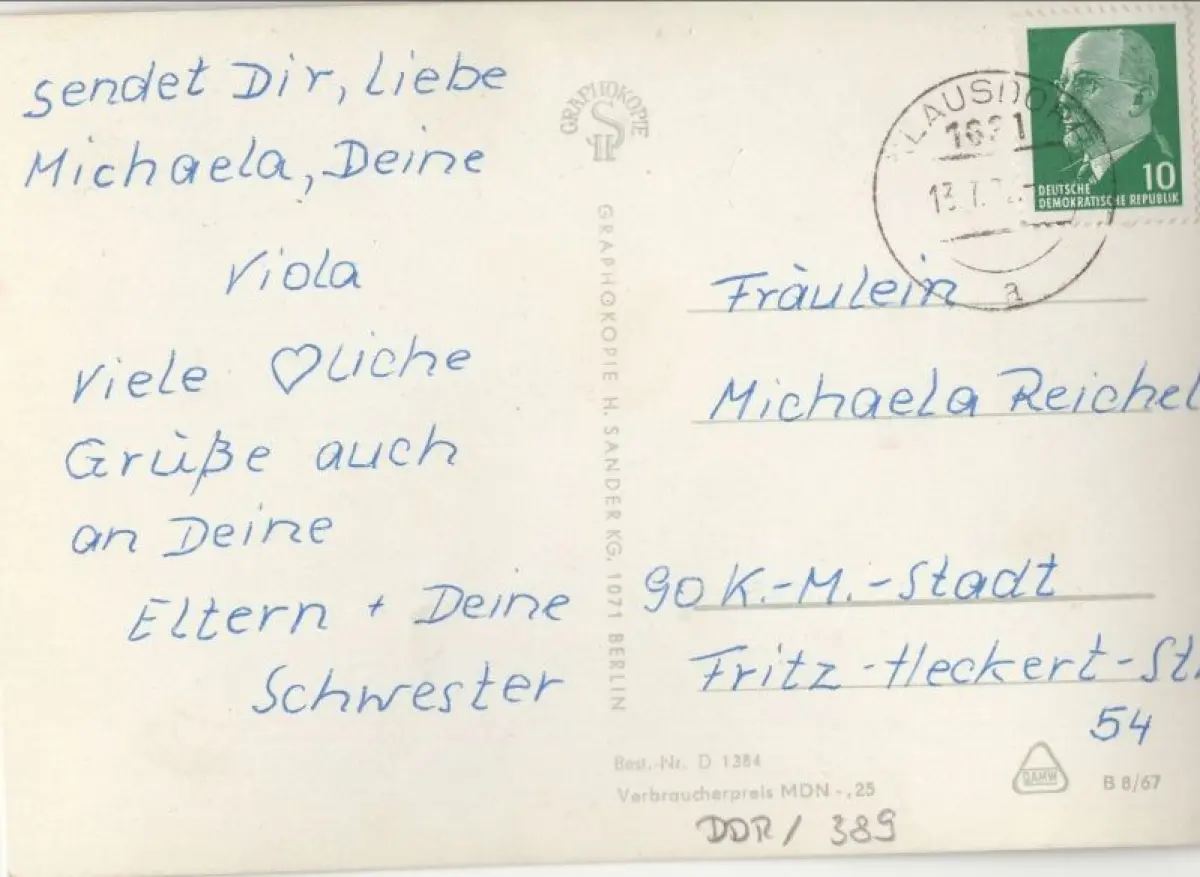 sendet Dir, liebe
Michaela, Deine
Viola
Viele ♡liche
Grüße auch
an Deine
Eltern + Deine
Schwester
GRAPHOKOPIE
GRAPHOKOPIE H. SANDER KG. 1071 BERLIN
KLAUSDORF
1631
13.7.
a
10
DEUTSCHE
DEMOKRATISCHE REPUBLIK
Fräulein
Michaela Reichel
90 K.-M.-Stadt
Fritz-Heckert-Str
54
Best.-Nr. D 1384
Verbraucherpreis MDN -,25
DAMW
B 8/67
DDR / 389